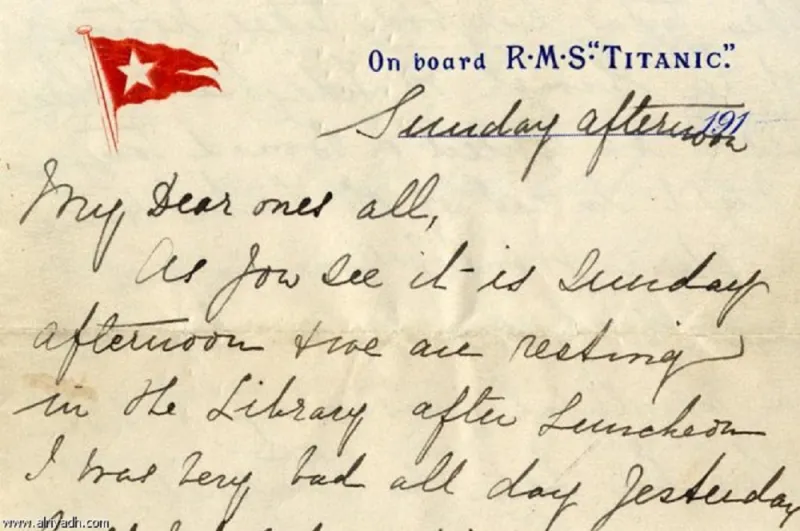 On board R·M·S·"TITANIC."
191
Sunday afternoon
My Dear ones all,
As you see it is Sunday
afternoon & we are resting
in the Library after Luncheon
I was very bad all day yesterday
www.alriyadh.com